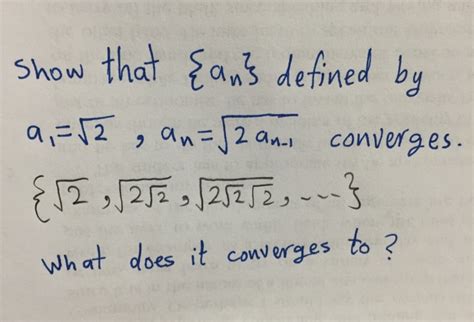 Show that {aₙ} defined by
a₁=√2 , aₙ=√(2 aₙ₋₁) converges.
{√2 , √(2√2) , √(2√2√2) , ---}
What does it converges to ?